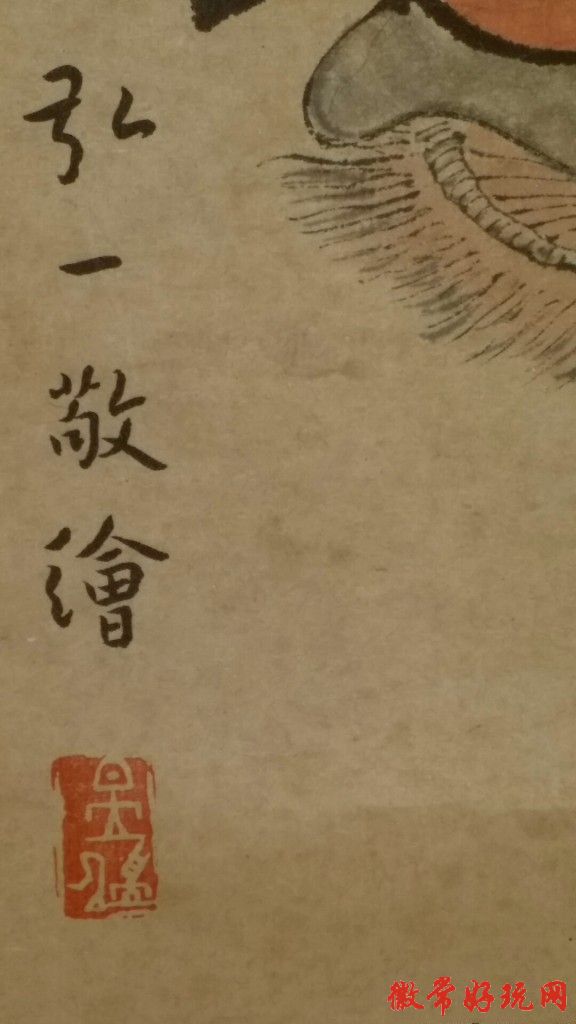 弘一敬繪
徽常好玩网